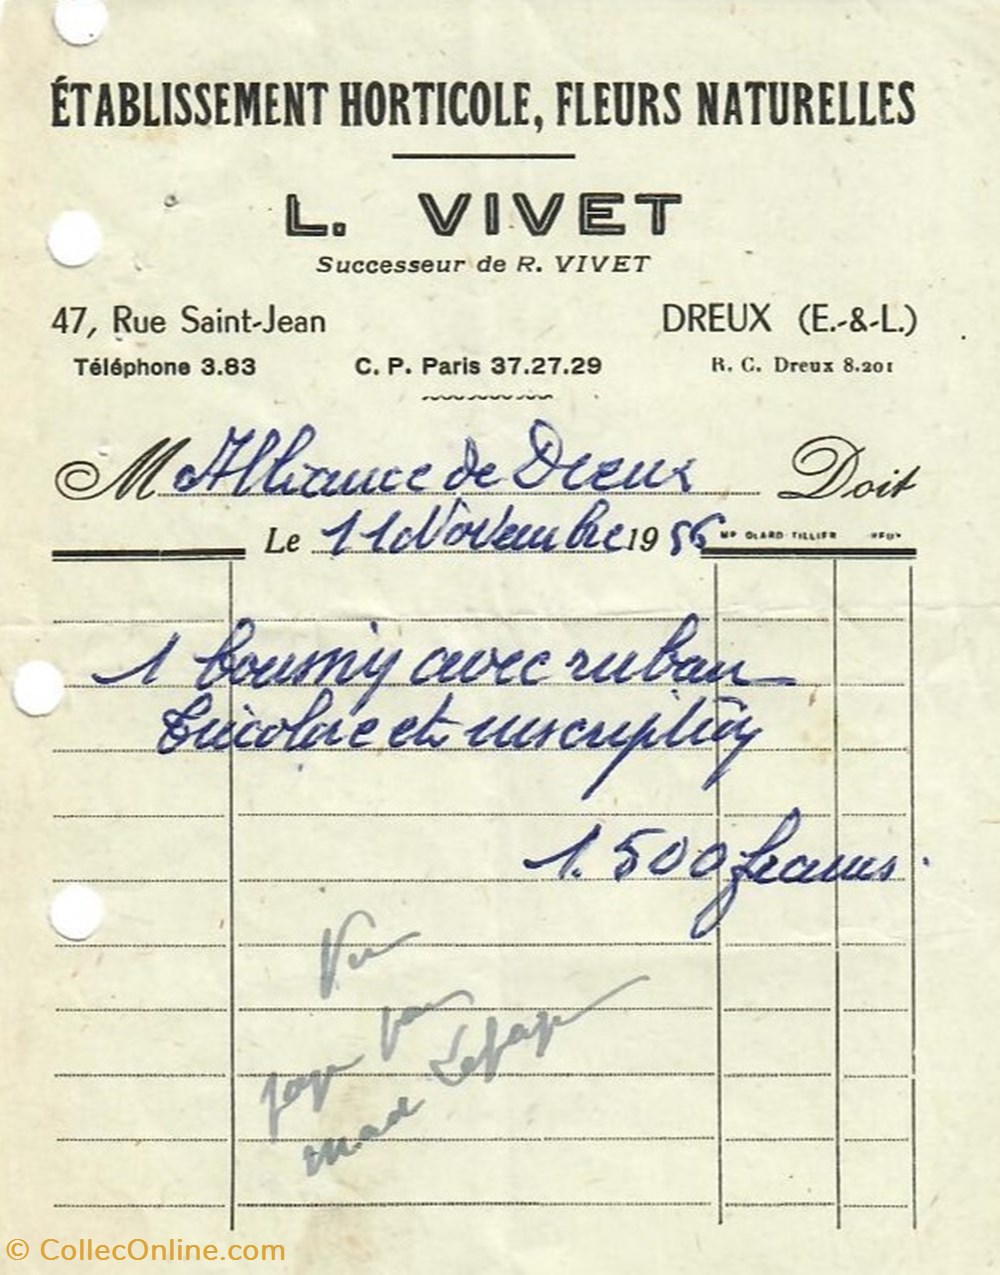 ÉTABLISSEMENT HORTICOLE, FLEURS NATURELLES
L. VIVET
Successeur de R. VIVET
47, Rue Saint-Jean DREUX (E.-&-L.)
Téléphone 3.83 C. P. Paris 37.27.29 R. C. Dreux 8.201
M Alliance de Dreux Doit
Le 11 Novembre 1956
MP OLARD-TILLIER
1 avec ruban
tricolore et inscription
1.500 francs.
Vu
par
© CollecOnline.com